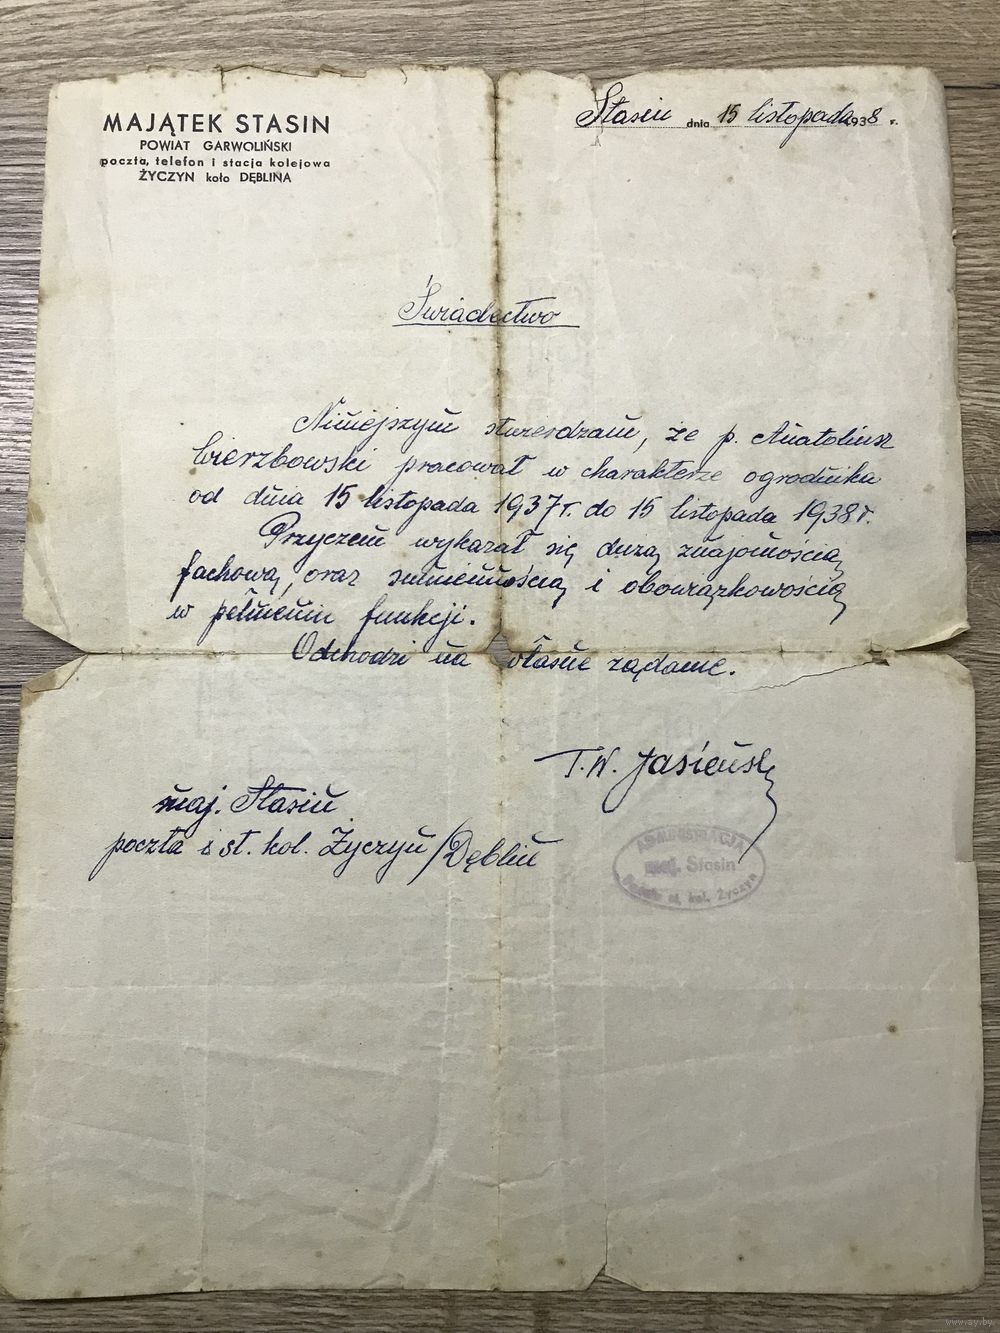 MAJĄTEK STASIN
POWIAT GARWOLIŃSKI
poczta, telefon i stacja kolejowa
ŻYCZYN koło DĘBLINA
Stasin dnia 15 listopada 1938 r.
Świadectwo
Niniejszym stwierdzam, że p. Anatoliusz
Wierzbowski pracował w charakterze ogrodnika
od dnia 15 listopada 1937 r. do 15 listopada 1938 r.
Przyczem wykazał się dużą znajomością
fachową, oraz sumiennością i obowiązkowością
w pełnieniu funkcji.
Odchodzi na własne żądanie.
T. W. Jasieńsk
maj. Stasin
poczta i st. kol. Życzyn/Dęblin
ADMINISTRACJA
maj. Stasin
st. kol. Życzyn
www.ay.by